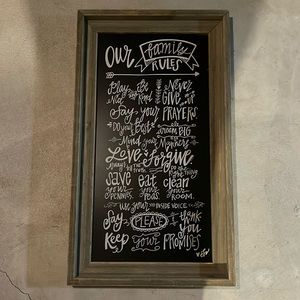 Our family
RULES
Play Be Never
Nice Kind GIVE UP
Say your PRAYERS
Do your Best DREAM BIG
Mind your Manners
Love & Forgive
Always tell the TRUTH Do the right thing
save eat clean
your your your
PENNIES. peas. ROOM.
use your INSIDE VOICE
Say PLEASE & thank you
Keep your PROMISES